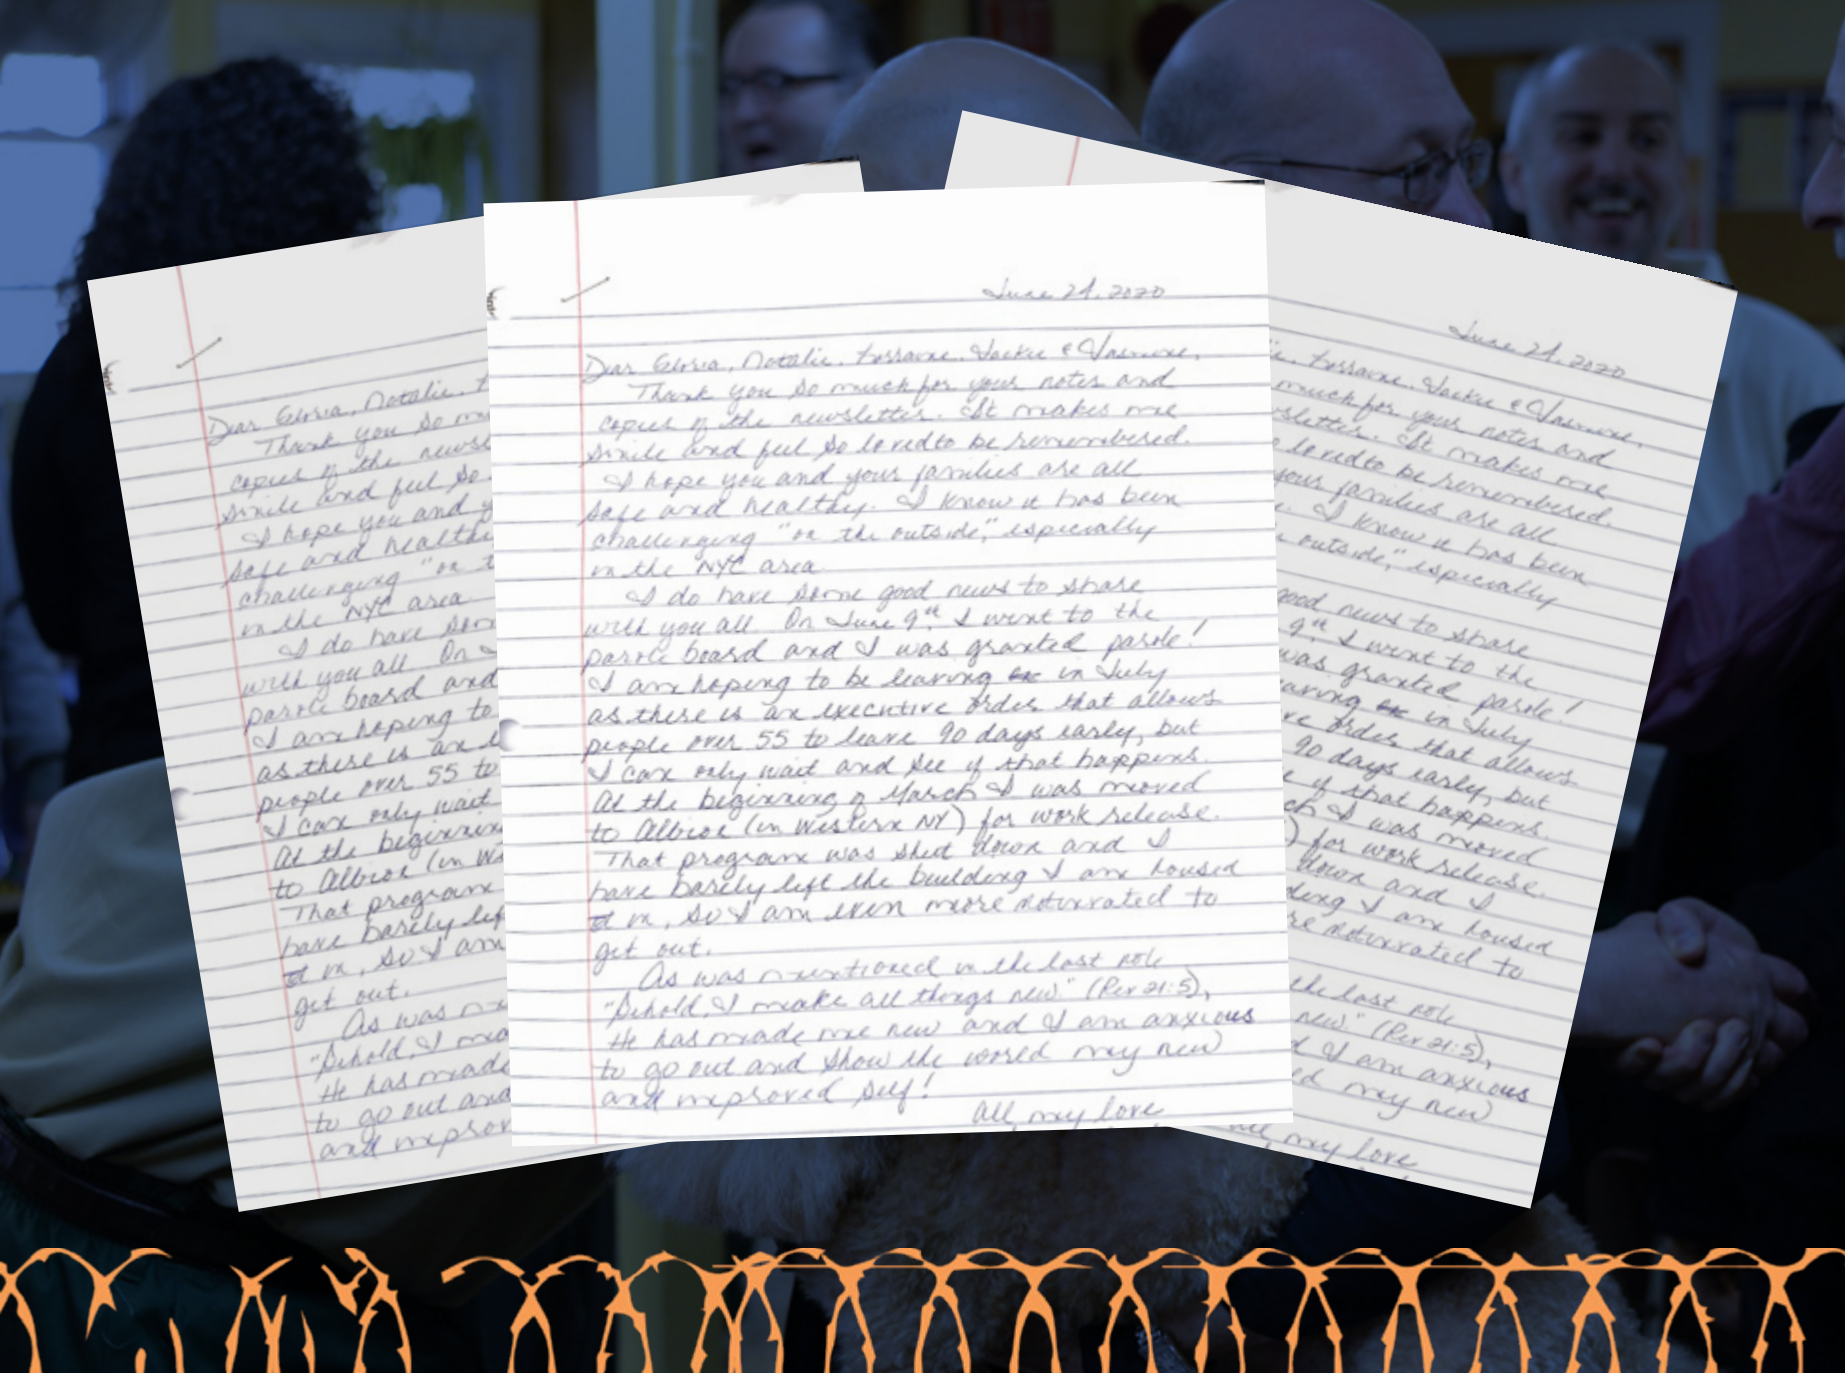 June 24, 2020
Dear Gloria, Natalie, Lorraine, Jackie & Jasmine,
Thank you so much for your notes and
copies of the newsletter. It makes me
smile and feel so loved to be remembered.
I hope you and your families are all
safe and healthy. I know it has been
challenging "on the outside," especially
in the NYC area.
I do have some good news to share
with you all. On June 9th I went to the
parole board and I was granted parole!
I am hoping to be leaving in July
as there is an executive order that allows
people over 55 to leave 90 days early, but
I can only wait and see if that happens.
At the beginning of March I was moved
to Albion (in Western NY) for work release.
That program was shut down and I
have barely left the building I am housed
in, so I am even more motivated to
get out.
As was mentioned in the last note
"Behold, I make all things new." (Rev 21:5),
He has made me new and I am anxious
to go out and show the world my new
and improved self!
All my love